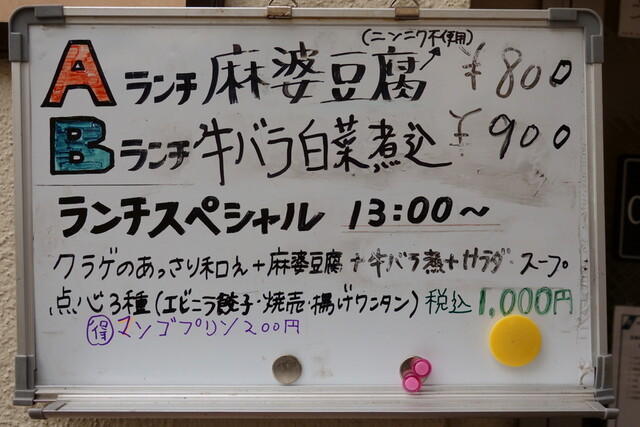 (ニンニク不使用)
A ランチ 麻婆豆腐 ¥800
B ランチ 牛バラ白菜煮込 ¥900
ランチスペシャル 13:00〜
クラゲのあっさり和え+麻婆豆腐+牛バラ煮+サラダ・スープ
点心3種(エビニラ餃子・焼売・揚げワンタン) 税込1,000円
得 マンゴプリン200円